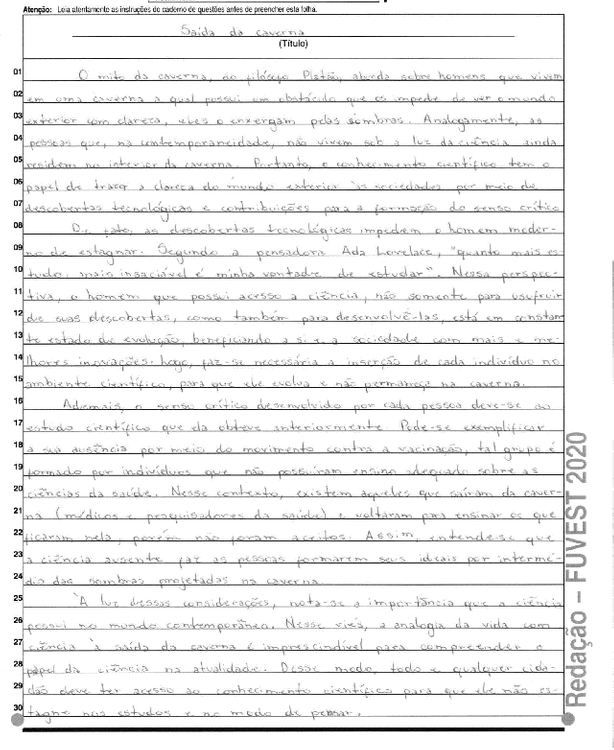 Atenção: Leia atentamente as instruções do caderno de questões antes de preencher esta folha.
Saída da caverna
(Título)
01 O mito da caverna, do filósofo Platão, aborda sobre homens que vivem
02 em uma caverna a qual possui um obstáculo que os impede de ver o mundo
03 exterior com clareza, eles o enxergam pelas sombras. Analogamente, as
04 pessoas que, na contemporaneidade, não vivem sob a luz da ciência ainda
05 residem no interior da caverna. Portanto, o conhecimento científico tem o
06 papel de trazer a clareza do mundo exterior às sociedades por meio de
07 descobertas tecnológicas e contribuições para a formação do senso crítico
08 De fato, as descobertas tecnológicas impedem o homem moder-
09 no de estagnar. Segundo a pensadora Ada Lovelace, "quanto mais es-
10 tudo, mais insaciável é minha vontade de estudar". Nessa perspec-
11 tiva, o homem que possui acesso a ciência, não somente para usufruir
12 de suas descobertas, como também para desenvolvê-las, está em constan-
13 te estado de evolução, beneficiando a si e a sociedade com mais e me-
14 lhores inovações. Logo, faz-se necessária a inserção de cada indivíduo no
15 ambiente científico, para que ele evolua e não permaneça na caverna.
16 Ademais, o senso crítico desenvolvido por cada pessoa deve-se ao
17 estudo científico que ela obteve anteriormente. Pode-se exemplificar
18 a sua ausência por meio do movimento contra a vacinação, tal grupo é
19 formado por indivíduos que não possuíram ensino adequado sobre as
20 ciências da saúde. Nesse contexto, existem aqueles que saíram da caver-
21 na (médicos e pesquisadores da saúde) e voltaram para ensinar os que
22 ficaram nela, porém não foram aceitos. Assim, entende-se que
23 a ciência ausente faz as pessoas formarem seus ideais por intermé-
24 dio das sombras projetadas na caverna.
25 À luz dessas considerações, nota-se a importância que a ciência
26 possui no mundo contemporâneo. Nesse viés, a analogia da vida com
27 ciência à saída da caverna é imprescindível para compreender o
28 papel da ciência na atualidade. Desse modo, todo e qualquer cida-
29 dão deve ter acesso ao conhecimento científico para que ele não es-
30 tagne nos estudos e no modo de pensar.
Redação – FUVEST 2020